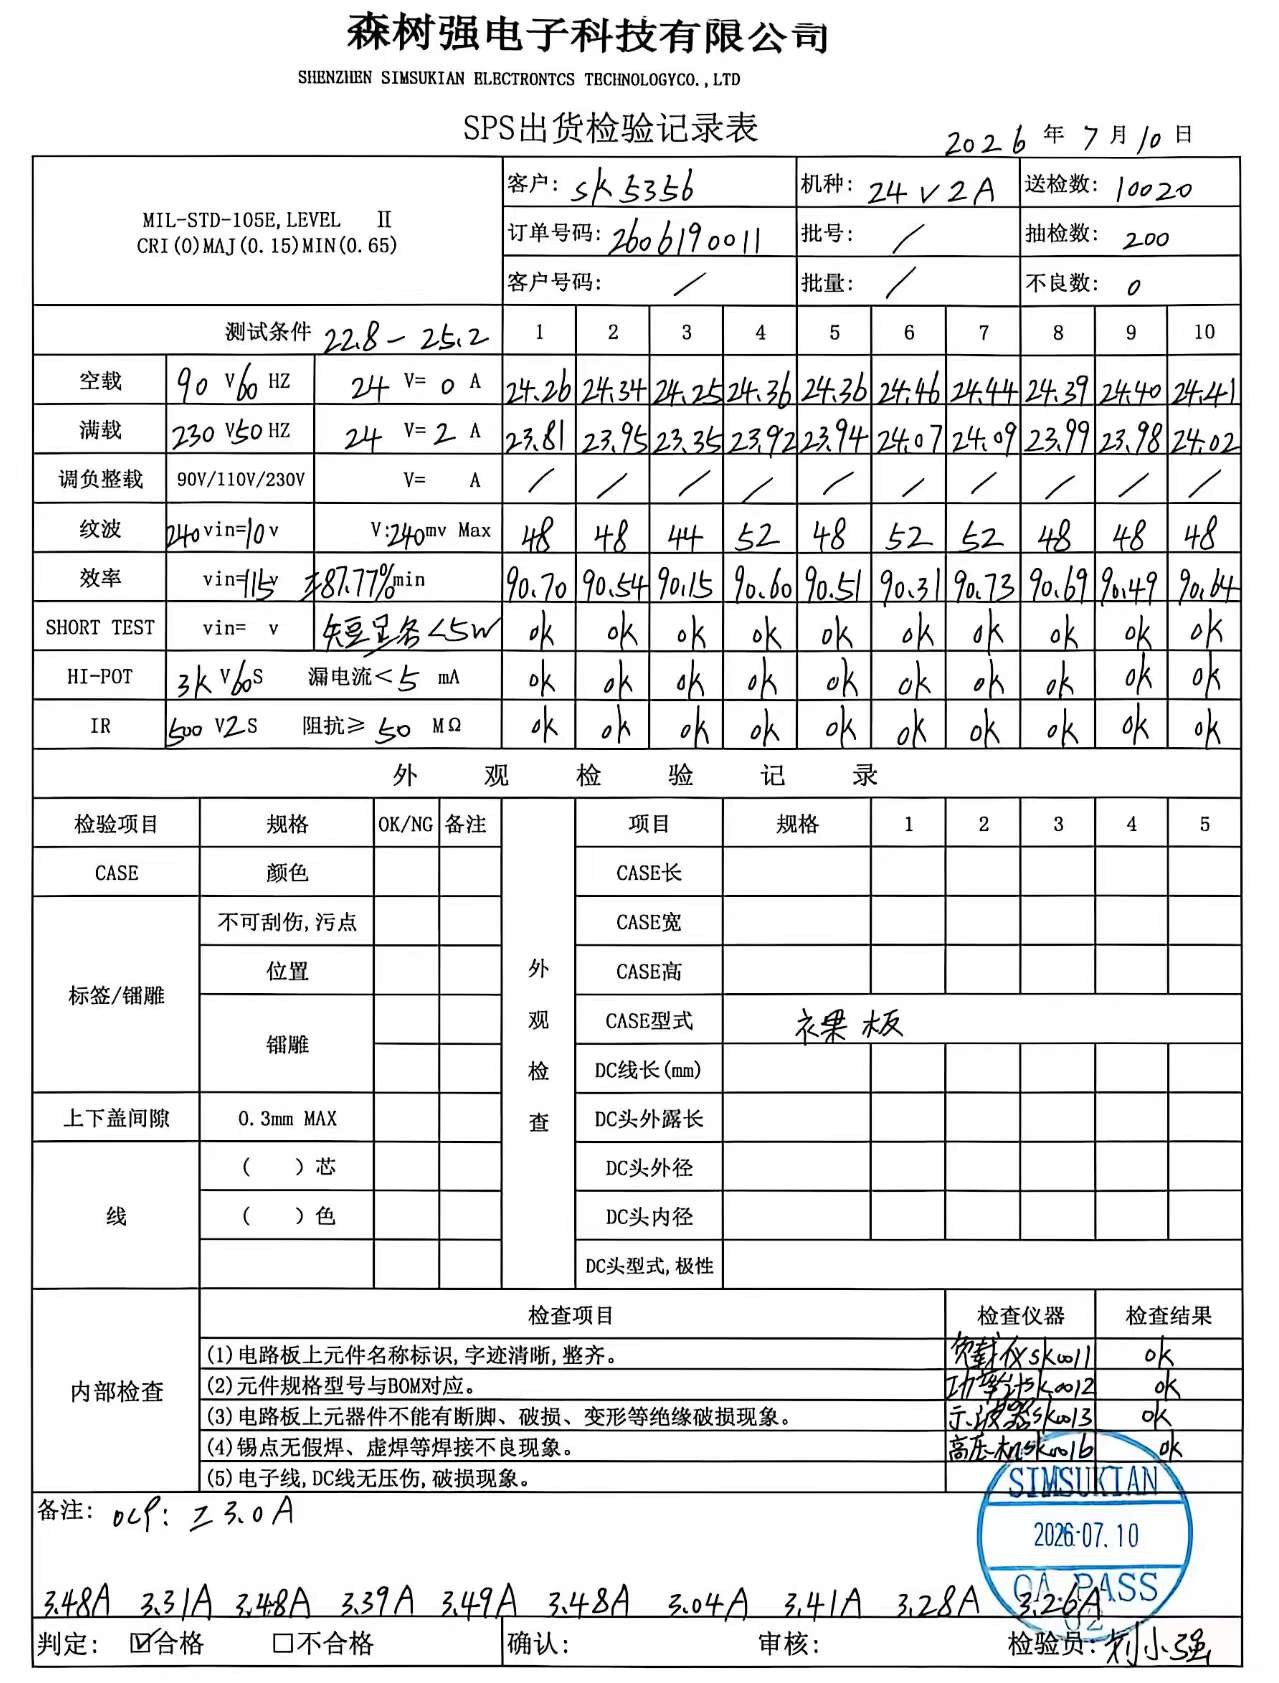 森树强电子科技有限公司
SHENZHEN SIMSUKIAN ELECTRONTCS TECHNOLOGYCO.,LTD
SPS出货检验记录表
2026 年 7 月 10 日
MIL-STD-105E,LEVEL Ⅱ
CRI(0)MAJ(0.15)MIN(0.65)
客户: SK5356 机种: 24V2A 送检数: 10020
订单号码: 2606190011 批号: / 抽检数: 200
客户号码: / 批量: / 不良数: 0
测试条件 22.8-25.2 1 2 3 4 5 6 7 8 9 10
空载 90 V 60 HZ 24 V= 0 A 24.26 24.34 24.25 24.36 24.36 24.46 24.44 24.39 24.40 24.41
满载 230 V 50 HZ 24 V= 2 A 23.81 23.95 23.35 23.92 23.94 24.07 24.09 23.99 23.98 24.02
调负整载 90V/110V/230V V= A / / / / / / / / / /
纹波 240 vin=10 v V:240mv Max 48 48 44 52 48 52 52 48 48 48
效率 vin=115v ≥87.77%min 90.70 90.54 90.15 90.60 90.51 90.31 90.73 90.69 90.49 90.64
SHORT TEST vin= v <5W ok ok ok ok ok ok ok ok ok ok
HI-POT 3K V 60 S 漏电流< 5 mA ok ok ok ok ok ok ok ok ok ok
IR 500 V 2 S 阻抗≥ 50 MΩ ok ok ok ok ok ok ok ok ok ok
外 观 检 验 记 录
检验项目 规格 OK/NG 备注 项目 规格 1 2 3 4 5
CASE 颜色 CASE长
不可刮伤,污点 CASE宽
标签/镭雕 位置 外 CASE高
镭雕 观 CASE型式 裸板
检 DC线长(mm)
上下盖间隙 0.3mm MAX 查 DC头外露长
( )芯 DC头外径
线 ( )色 DC头内径
DC头型式,极性
内部检查 检查项目 检查仪器 检查结果
(1)电路板上元件名称标识,字迹清晰,整齐。 负载仪SK0011 ok
(2)元件规格型号与BOM对应。 功率计SK0012 ok
(3)电路板上元器件不能有断脚、破损、变形等绝缘破损现象。 示波器SK0013 ok
(4)锡点无假焊、虚焊等焊接不良现象。 高压机SK0016 ok
(5)电子线,DC线无压伤,破损现象。
SIMSUKIAN
备注: OCP: ≥3.0A
2026.07.10
QA PASS
02
3.48A 3.31A 3.48A 3.39A 3.49A 3.48A 3.04A 3.41A 3.28A 3.26A
判定: ☑合格 □不合格 确认: 审核: 检验员: 刘小强